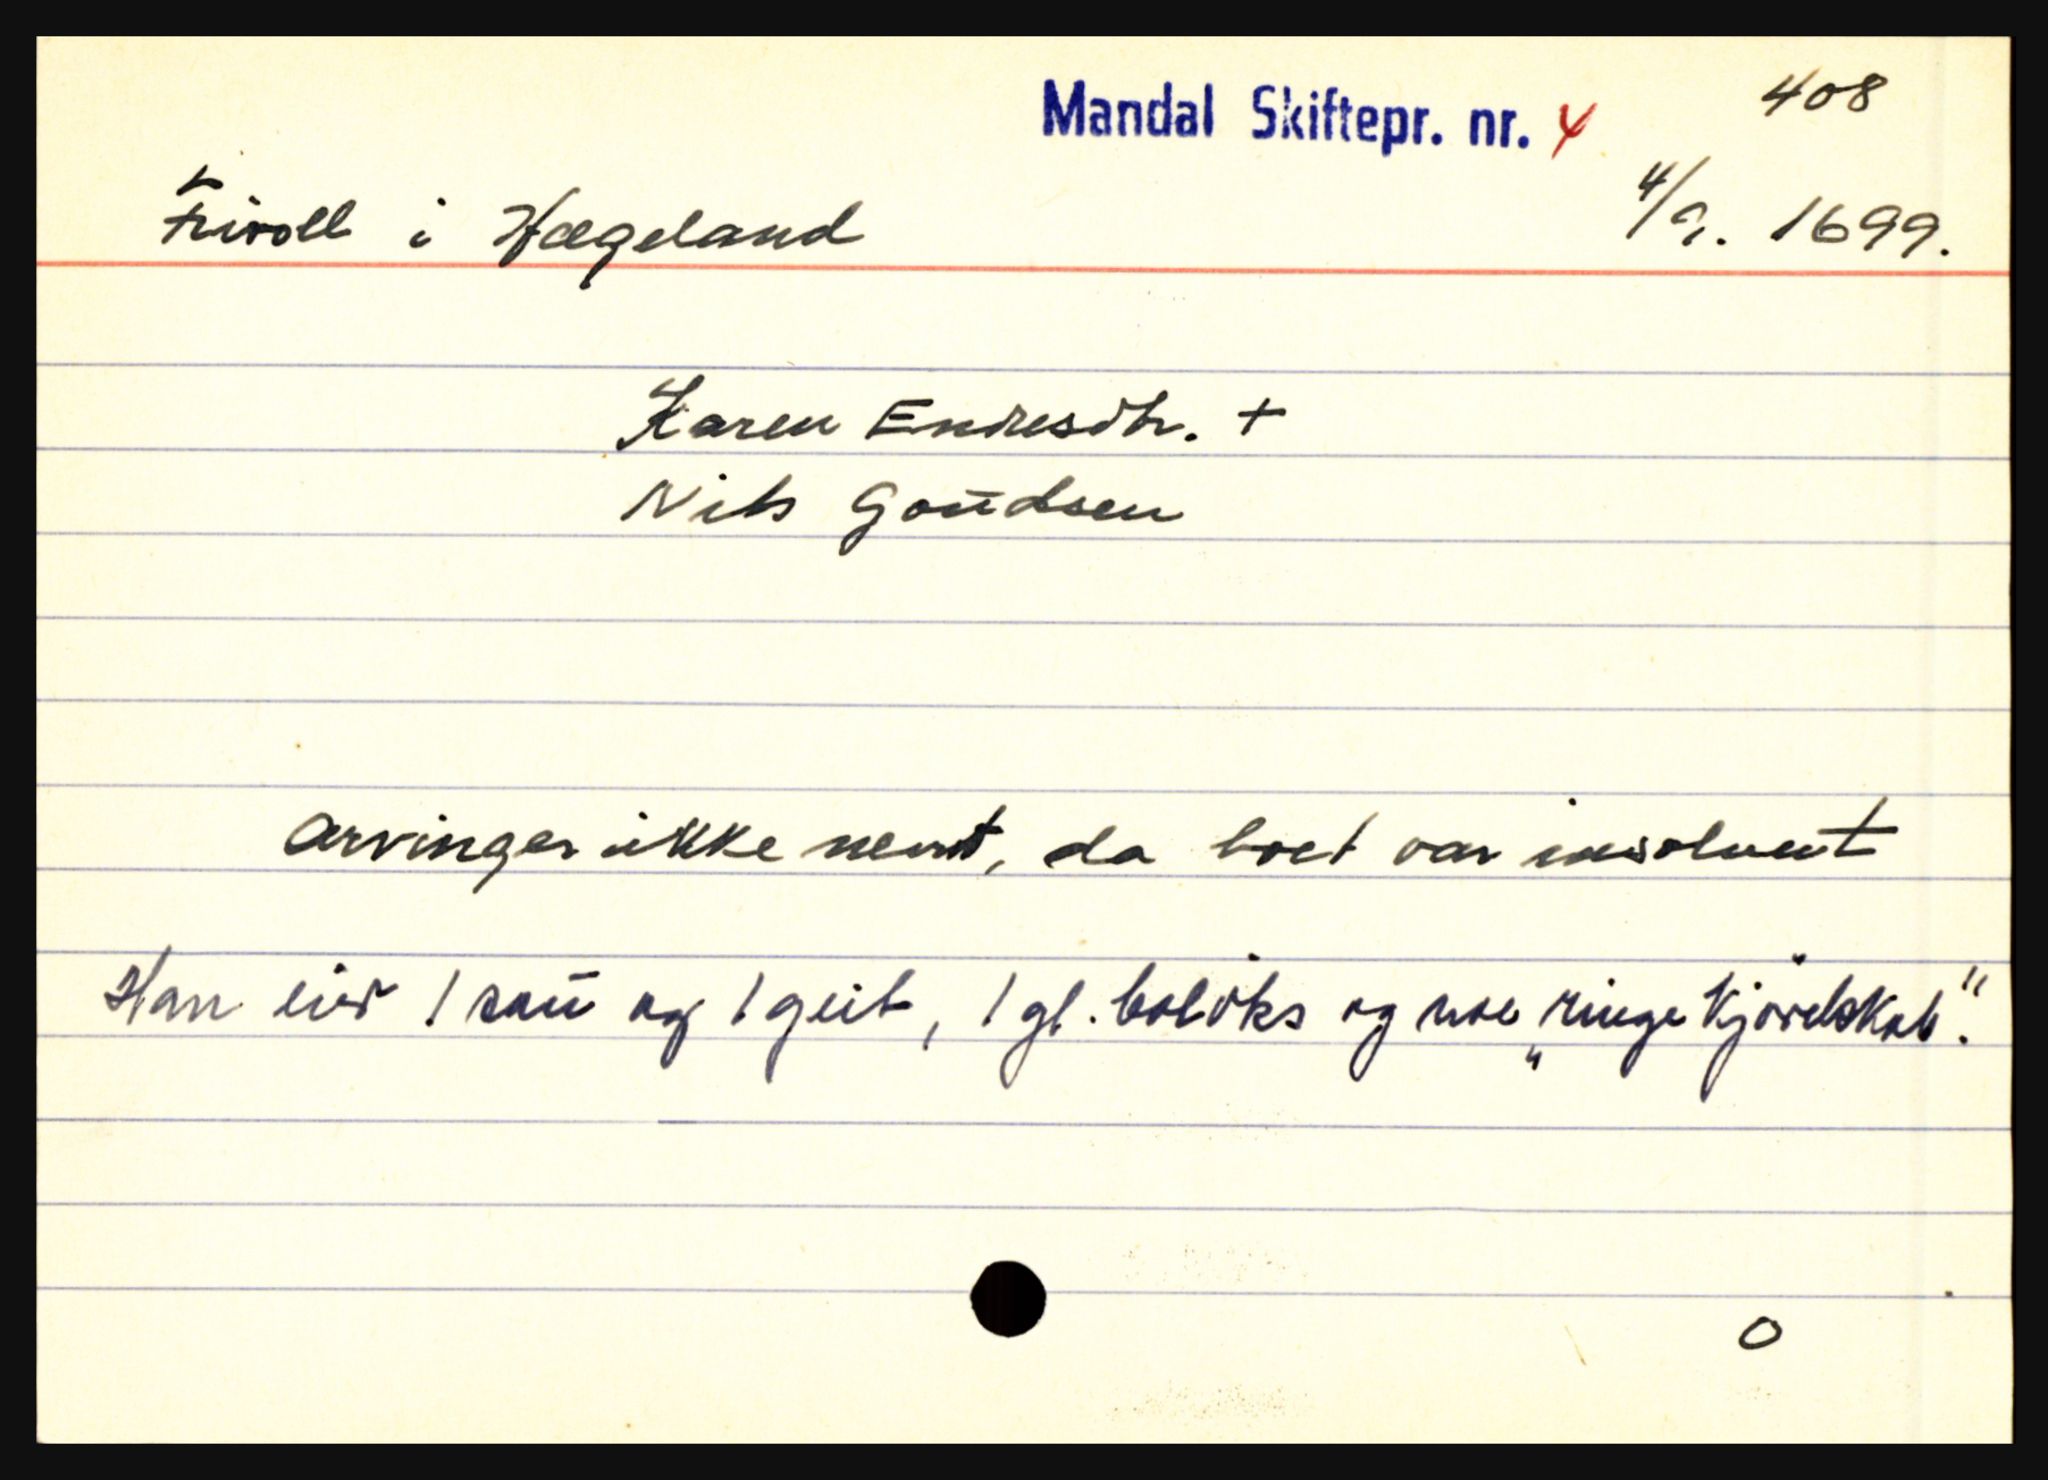 Mandal Skiftepr. nr. 4
408
Frivoll i Hægeland
4/9. 1699.
Karen Endresdtr. +
Nils Gaudsen
Arvinger ikke nevnt, da boet var insolvent
Han eier 1 sau og 1 geit, 1 gl. boløks og noe „ringe kjørelskab".
0